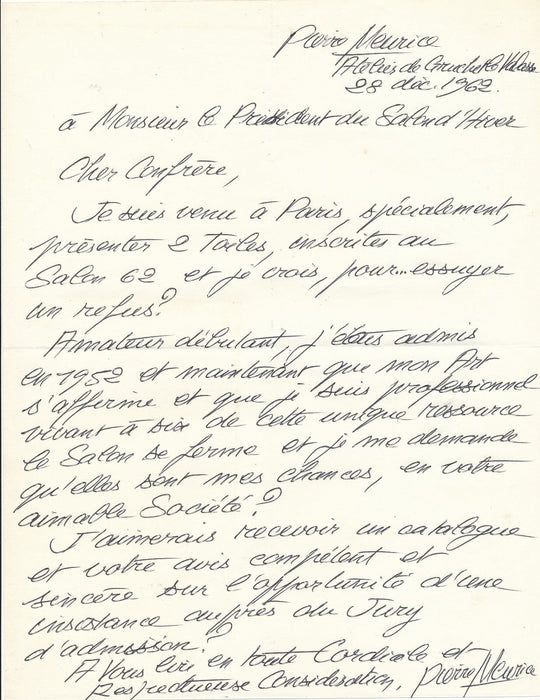 Pierre Meurice
Atelier de Gruchet le Valasse
28 déc. 1962.
à Monsieur le Président du Salon d'Hiver
Cher Confrère,
Je suis venu à Paris, spécialement,
présenter 2 Toiles, inscrites au
Salon 62 et je crois, pour... essuyer
un refus?
Amateur débutant, j'étais admis
en 1952 et maintenant que mon Art
s'affirme et que je suis professionnel
vivant à six de cette unique ressource
le Salon se ferme et je me demande
qu'elles sont mes chances, en votre
aimable Société?
J'aimerais recevoir un catalogue
et votre avis compétent et
sincère sur l'opportunité d'une
insistance auprès du Jury
d'admission?
A Vous lire en toute Cordiale et
Respectueuse Considération, Pierre Meurice